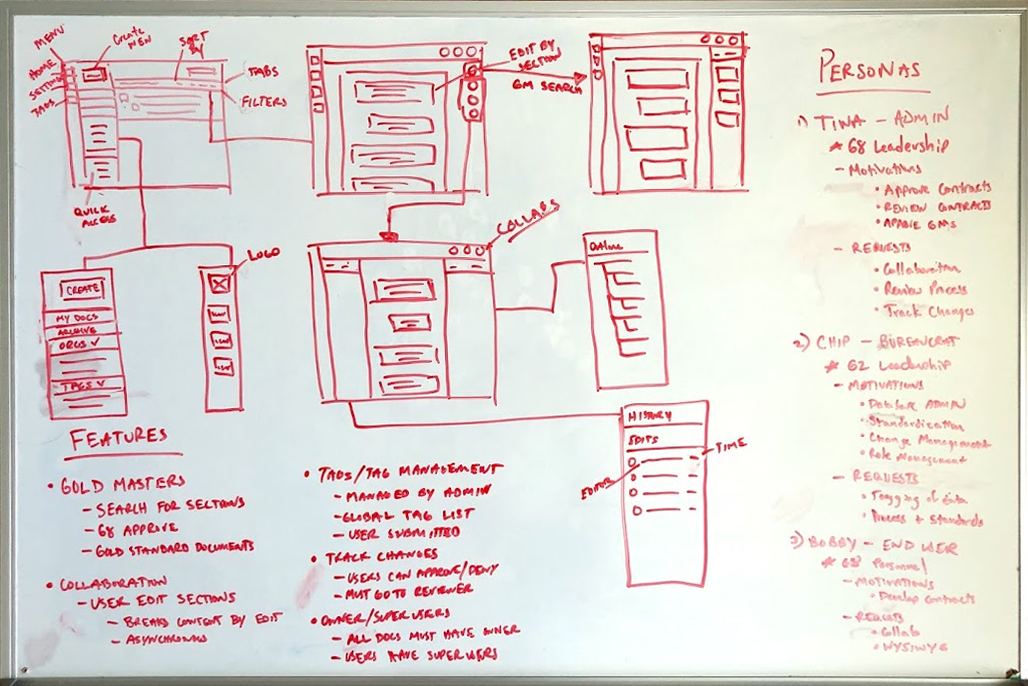 MENU
Create
NEW
SORT
BY
HOME
SETTINGS
TAGS
TABS
FILTERS
QUICK
ACCESS
EDIT BY
SECTION
GM SEARCH
COLLABS
LOGO
CREATE
MY DOCS
ARCHIVE
ORGS
TAGS
Outline
HISTORY
EDITS
TIME
EDITOR
FEATURES
• GOLD MASTERS
- SEARCH FOR SECTIONS
- G8 APPROVE
- GOLD STANDARD DOCUMENTS
• COLLABORATION
- USER EDIT SECTIONS
- BREAKS CONTENT BY EDIT
- ASYNCHRONOUS
• TAGS/TAG MANAGEMENT
- MANAGED BY ADMIN
- GLOBAL TAG LIST
- USER SUBMITTED
• TRACK CHANGES
- USERS CAN APPROVE/DENY
- MUST GO TO REVIEWER
• OWNER/SUPER USERS
- ALL DOCS MUST HAVE OWNER
- USERS HAVE SUPER USERS
PERSONAS
1) TINA - ADMIN
* G8 Leadership
- Motivations
• Approve Contracts
• REVIEW CONTRACTS
GMS
- REQUESTS
• Collaboration
• Review Process
• Track Changes
2) CHIP - BUREAUCRAT
* G2 Leadership
- MOTIVATIONS
• Database ADMIN
• Standardization
• Change Management
• Role Management
- REQUESTS
• Tagging of data
• Process + Standards
3) BOBBY - END USER
* G8 Personnel
- MOTIVATIONS
• Develop contracts
- REQUESTS
• Collab
• WYSIWYG